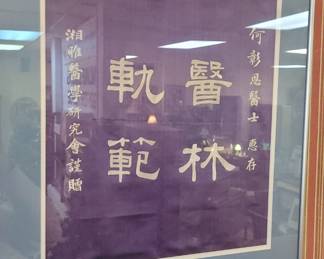 何彰恩醫士 惠存
醫林
軌範
湘雅醫學研究會謹贈